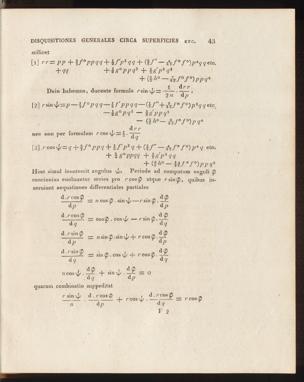 DISQUISITIONES GENERALES CIRCA SUPERFICIES ETC. 43
scilicet
[1] rr = pp + ⅔f°ppqq + ½f'p³qq + (⅖f'' − 4/45 f°f°)p⁴qq etc.
+ qq + ½g°ppq³ + ⅖g'p³q³
+ (⅖h° − 7/45 f°f°)ppq⁴
Dein habemus, ducente formula r sin ψ = 1/2n · drr/dp,
[2] r sin ψ = p − ⅓f°pqq − ¼f'ppqq − (⅕f'' + 8/45 f°f°)p³qq etc.
− ½g°pq³ − ⅖g'ppq³
− (⅗h° − 8/45 f°f°)pq⁴
nec non per formulam r cos ψ = ½ · drr/dq
[3] r cos ψ = q + ⅔f°ppq + ½f'p³q + (⅖f'' − 4/45 f°f°)p⁴q etc.
+ ¾g°ppqq + ⅗g'p³qq
+ (⅘h° − 14/45 f°f°)ppq³
Hinc simul innotescit angulus ψ. Perinde ad computum anguli φ
concinnius evoluuntur series pro r cos φ atque r sin φ, quibus in-
serviunt aequationes differentiales partiales
d.r cos φ/dp = n cos φ . sin ψ − r sin φ . dφ/dp
d.r cos φ/dq = cos φ . cos ψ − r sin φ . dφ/dq
d.r sin φ/dp = n sin φ . sin ψ + r cos φ . dφ/dp
d.r sin φ/dq = sin φ . cos ψ + r cos φ . dφ/dq
n cos ψ . dφ/dq + sin ψ . dφ/dp = 0
quarum combinatio suppeditat
r sin ψ/n . d.r cos φ/dp + r cos ψ . d.r cos φ/dq = r cos φ
F 2